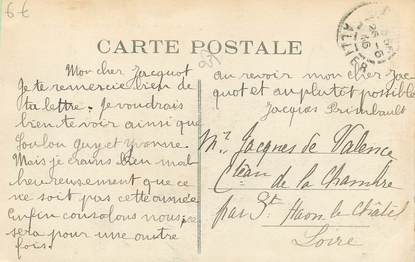 6€
CARTE POSTALE
ALLIER
Mon cher Jacquot
Je te remercie bien de
ta lettre. Je voudrais
bien te voir ainsi que
Loulou guy et Yvonne.
Mais je crains bien mal-
heureusement que ce
ne soit pas cette année
Enfin consolons nous, ce
sera pour une autre
fois.
au revoir mon cher Jac
quot et au plutôt possible
Jacques Brimbault
Mr. Jacques de Valence
Cteau de la Chambre
par St Haon le Châtel
Loire